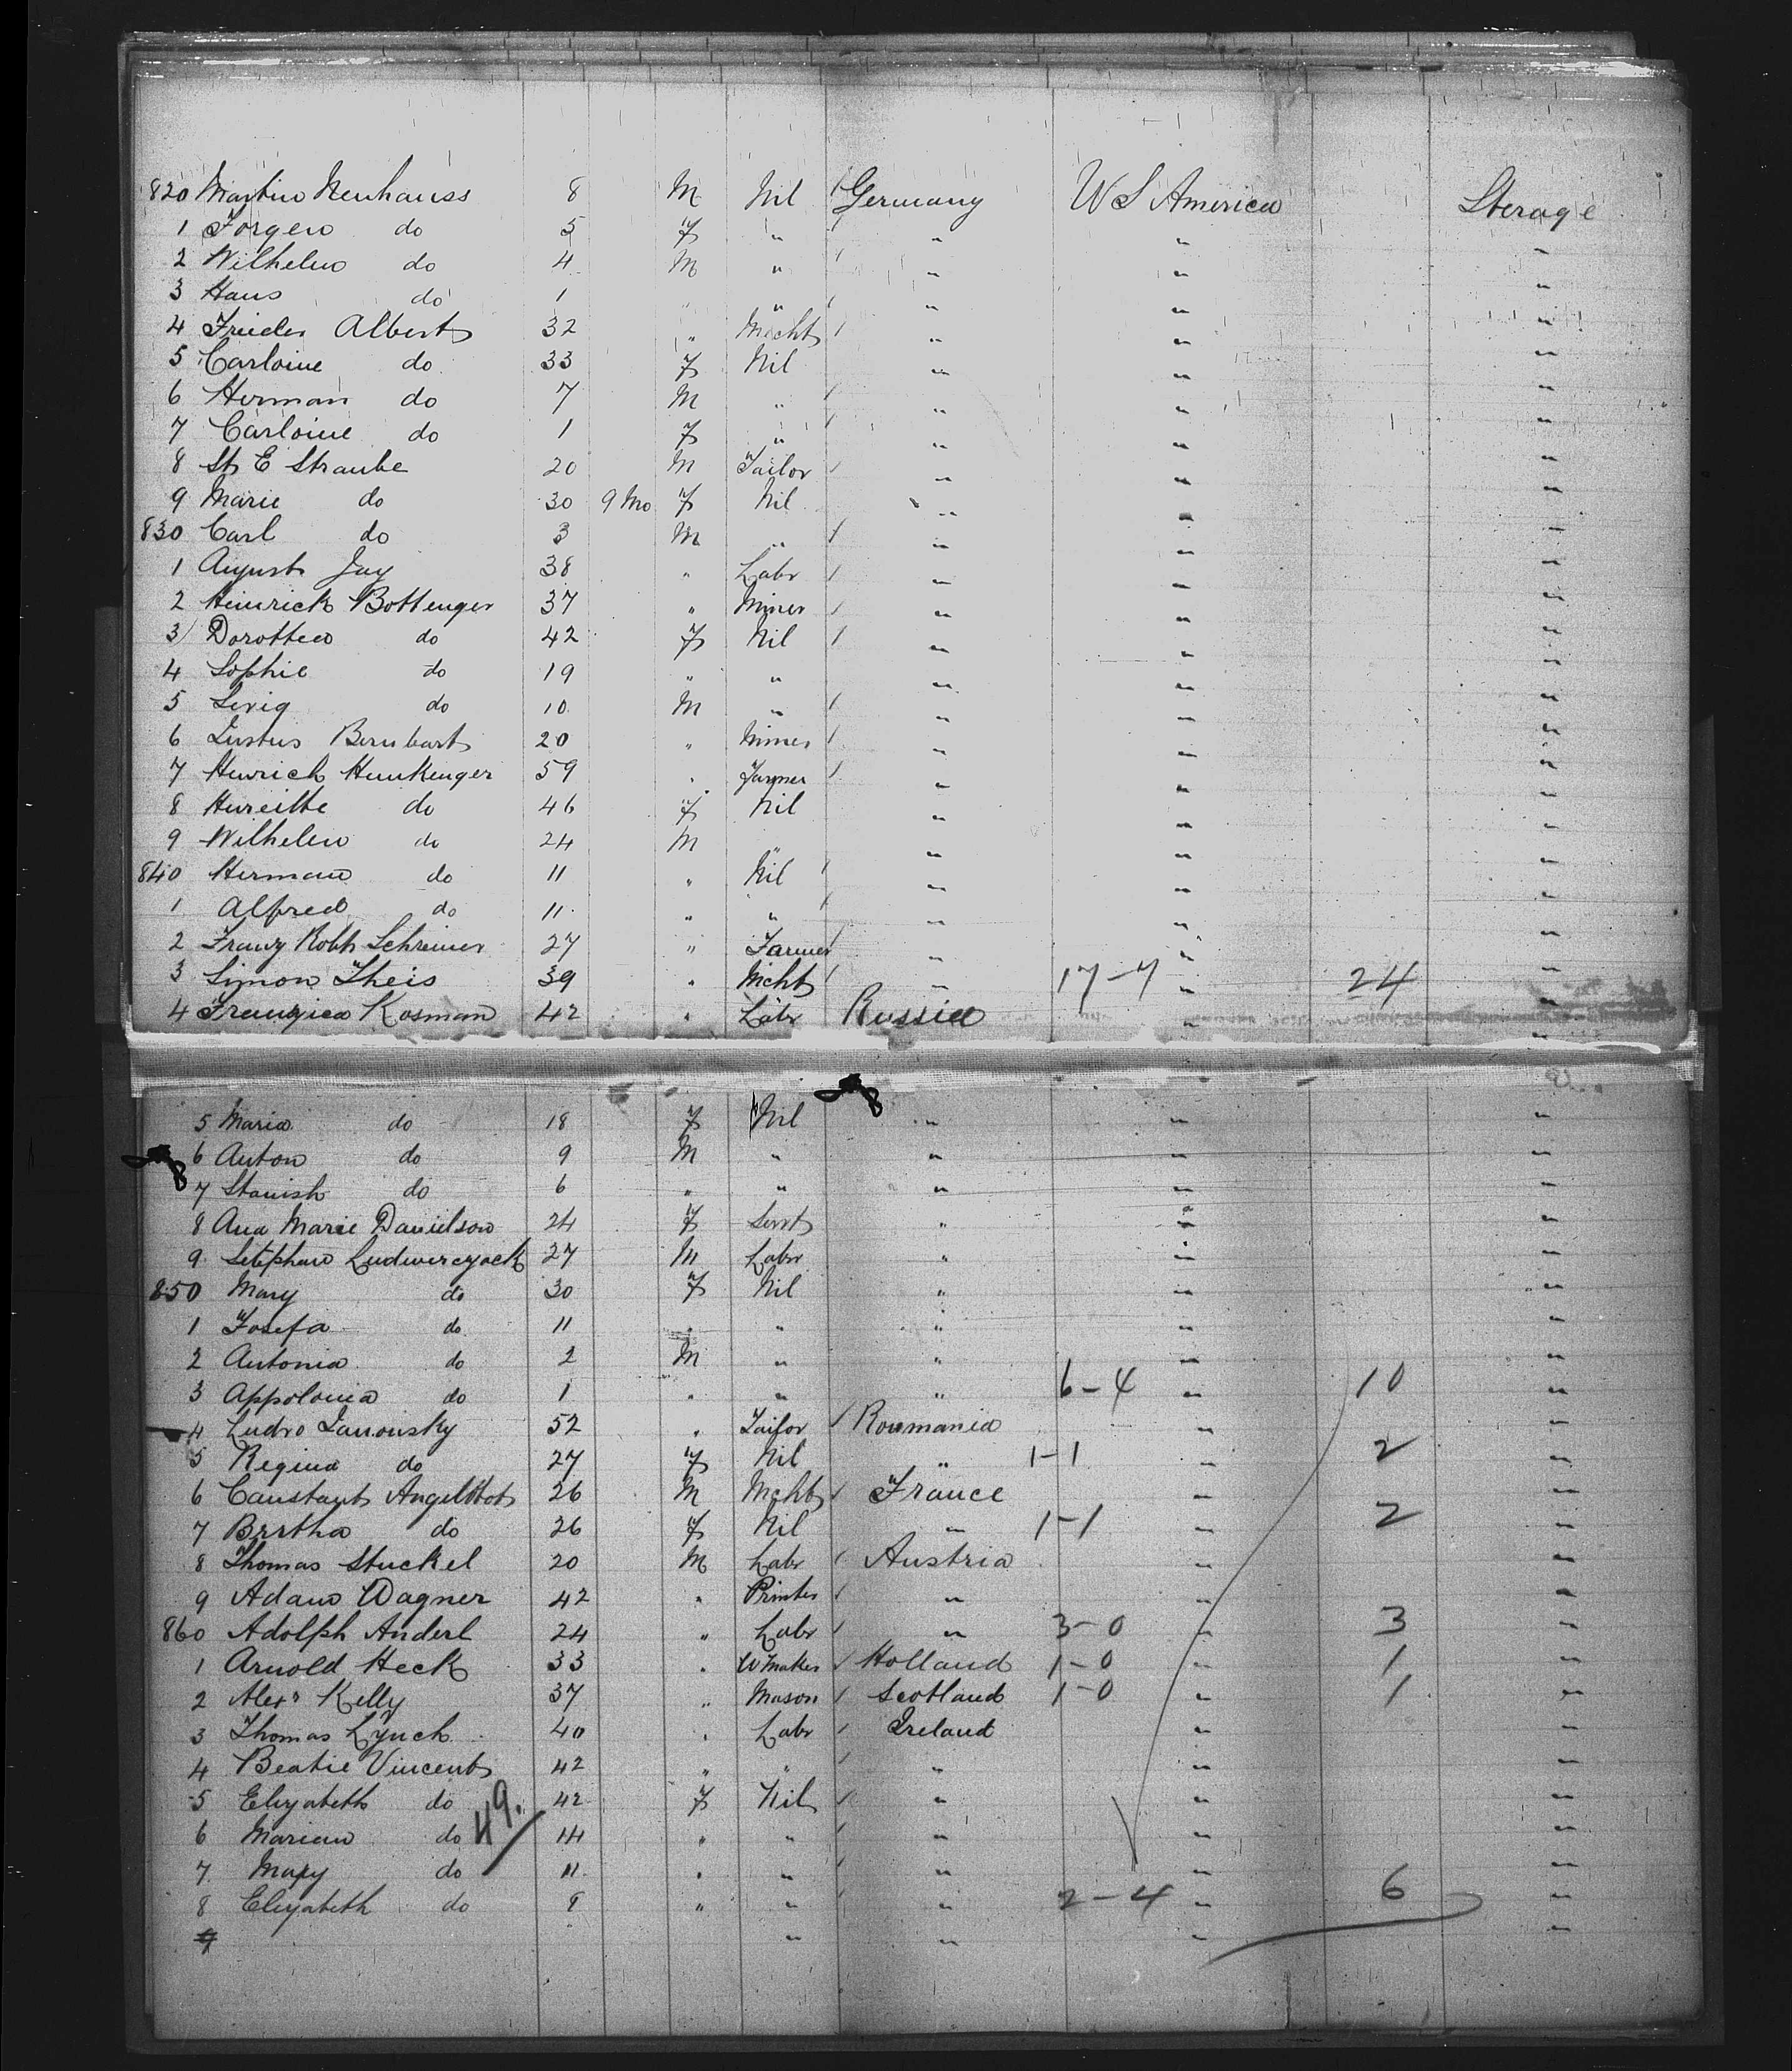 820 Martin Neuhauss 8 M Nil Germany U S America Sterage
1 Jorgen do 5 F " " " "
2 Wilhelm do 4 M " " " "
3 Hans do 1 " " " " "
4 Frieder Albert 32 " Mecht " " "
5 Carloine do 33 F Nil " " "
6 Herman do 7 M " " " "
7 Carloine do 1 F " " " "
8 St E Straube 20 M Tailor " " "
9 Marie do 30 9 Mo F Nil " " "
830 Carl do 3 M " " " "
1 August Jay 38 " Labr " " "
2 Heinrich Bottenger 37 " Miner " " "
3 Dorottea do 42 F Nil " " "
4 Sophie do 19 " " " " "
5 Levig do 10 M " " " "
6 Justus Bernbart 20 " Miner " " "
7 Henrich Hunkenger 59 " Farmer " " "
8 Hureitte do 46 F Nil " " "
9 Wilhelm do 24 M " " " "
840 Herman do 11 " Nil " " "
1 Alfred do 11 " " " " "
2 Franz Robt Schreiner 27 " Farmer " " "
3 Simon Theis 39 " Mcht " 17-7 " 24 "
4 Franzica Kosman 42 " Labr Russia " "
5 Maria do 18 F Nil " " "
6 Anton do 9 M " " " "
7 Stanish do 6 " " " " "
8 Ana Marie Danielson 24 F Servt " " "
9 Setephan Ludwerczack 27 M Labr " " "
850 Mary do 30 F Nil " " "
1 Josefa do 11 " " " " "
2 Antonia do 2 M " " " "
3 Appolonia do 1 " " " 6-4 " 10 "
4 Ludvo Janonsky 52 " Tailor Roumania " "
5 Regina do 27 F Nil " 1-1 " 2 "
6 Canstant Angelblot 26 M Mcht France " "
7 Brrtha do 26 F Nil " 1-1 " 2 "
8 Thomas Stuckel 20 M Labr Austria " "
9 Adam Wagner 42 " Printer " " "
860 Adolph Anderl 24 " Labr " 3-0 " 3 "
1 Arnold Heck 33 " W Maker Holland 1-0 " 1 "
2 Alexr Kelly 37 " Mason Scotland 1-0 " 1 "
3 Thomas Lynch 40 " Labr Ireland " "
4 Beatie Vincent 42 " " " " "
5 Elizabeth do 49. 42 F Nil " " "
6 Marian do 14 " " " " "
7 Mary do 11 " " " " "
8 Elizabeth do 9 " " " 2-4 " 6 "
9 " " " "